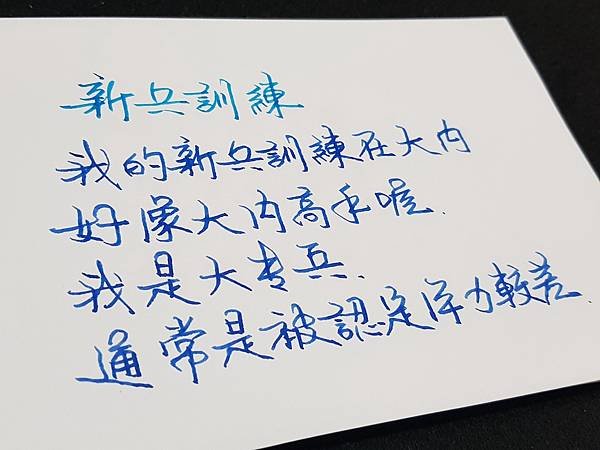 新兵訓練
我的新兵訓練在大內
好像大內高手喔.
我是大專兵.
通常是被認定体力較差.